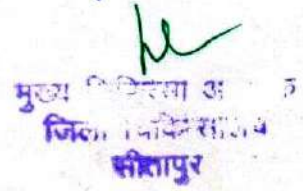 मुख्य चिकित्सा
जिला चिकित्सालय
सीतापुर